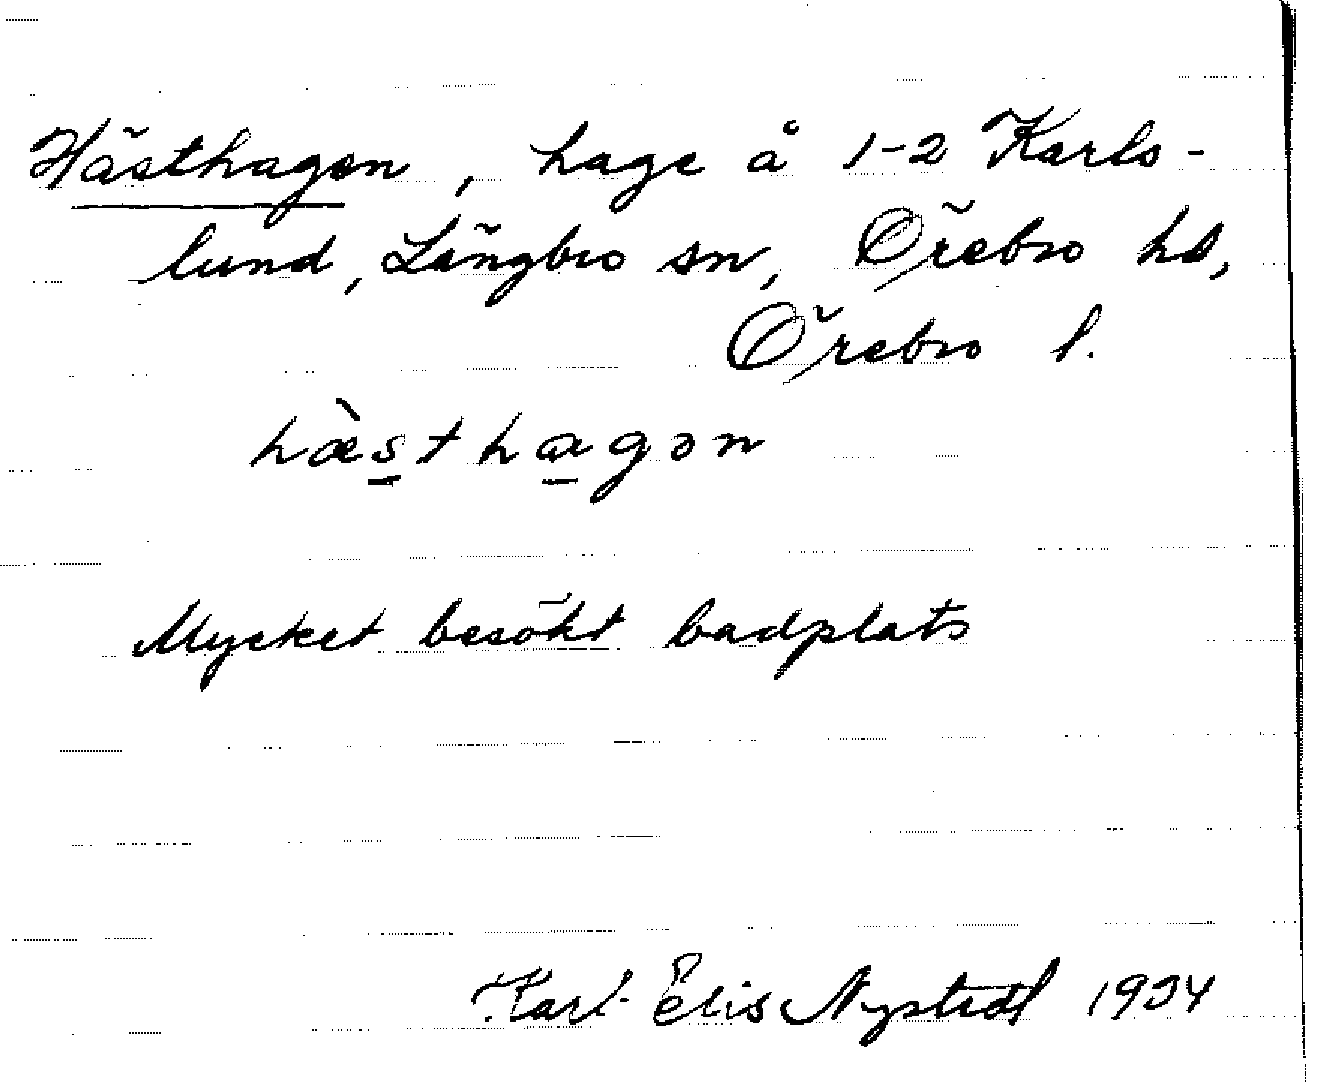 Hästhagen, hage å 1-2 Karls-
lund, Längbro sn, Örebro hd,
Örebro l.
hæ̀sthagən
Mycket besökt badplats
Karl-Elis Nystedt 1934